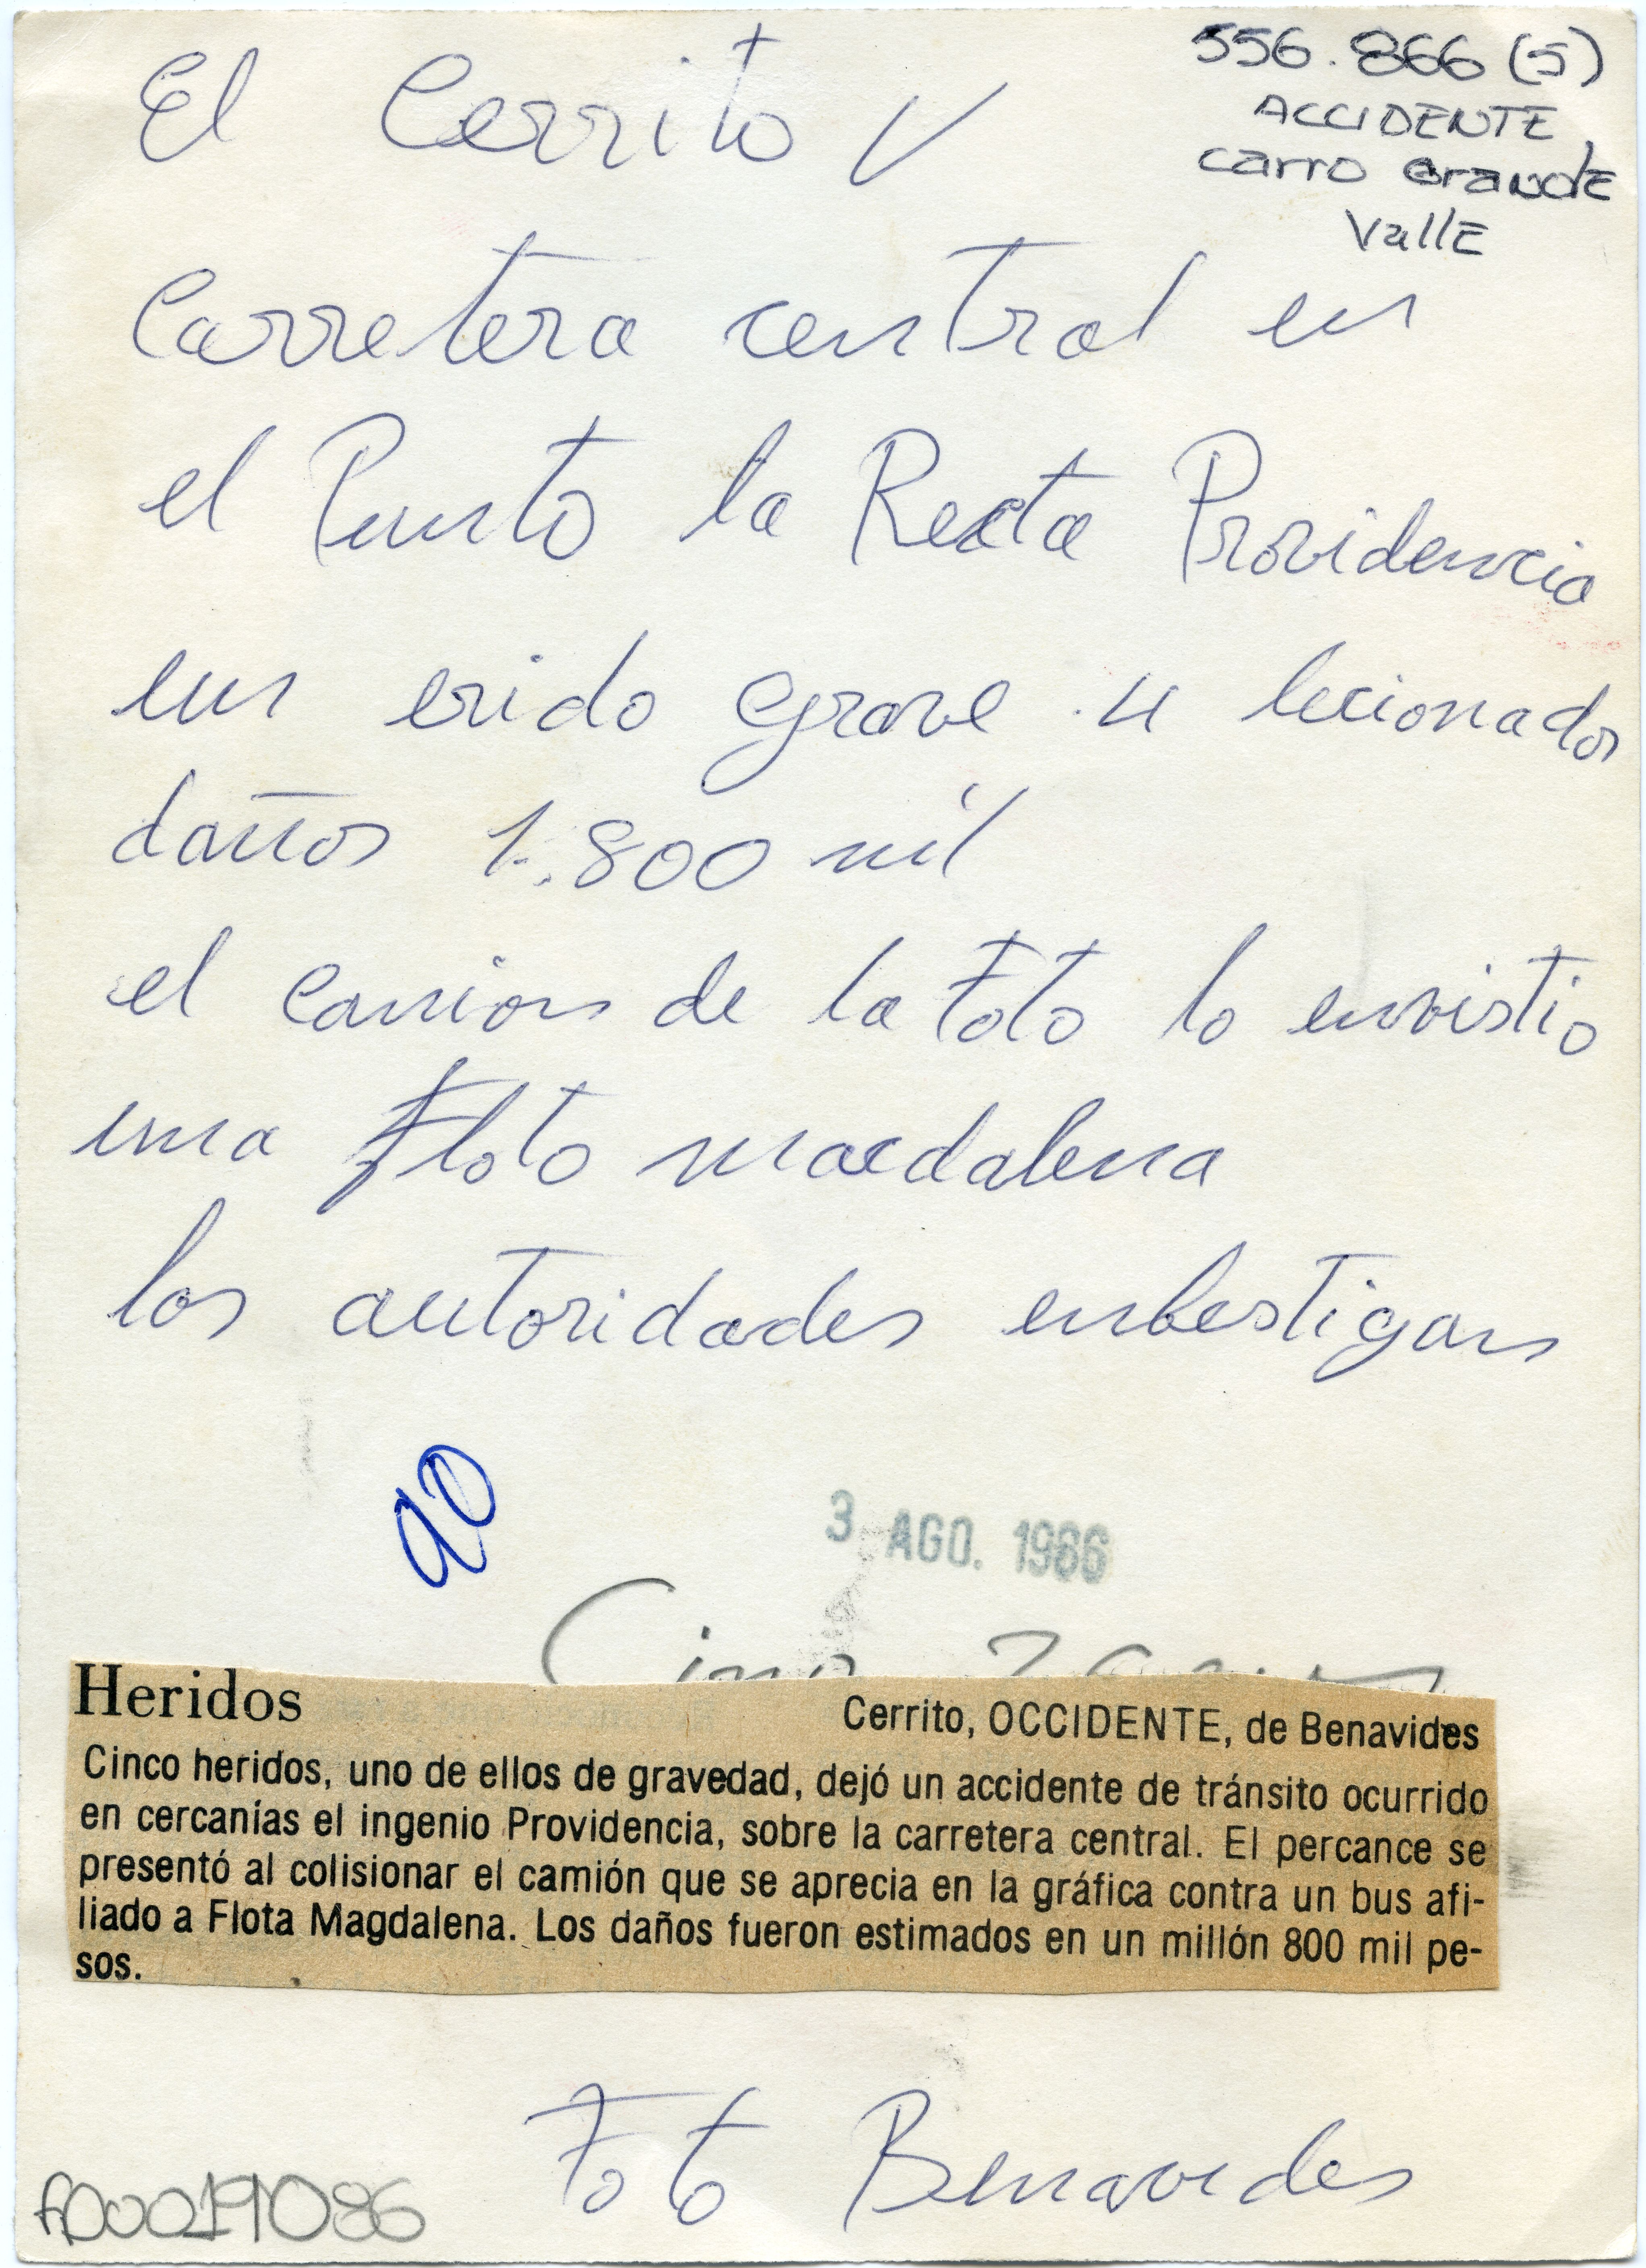 El Cerrito V
556.866 (5)
ACCIDENTE
carro GrandE
VallE
Carretera central en
el Punto la Recta Providencia
un erido grave . 4 lecionados
daños 1.800 mil
el camion de la Foto lo envistio
una Flota macdalena
las autoridades enbestigan
3 AGO. 1986
Heridos
Cerrito, OCCIDENTE, de Benavides
Cinco heridos, uno de ellos de gravedad, dejó un accidente de tránsito ocurrido
en cercanías el ingenio Providencia, sobre la carretera central. El percance se
presentó al colisionar el camión que se aprecia en la gráfica contra un bus afi-
liado a Flota Magdalena. Los daños fueron estimados en un millón 800 mil pe-
sos.
Foto Benavides
f00019086